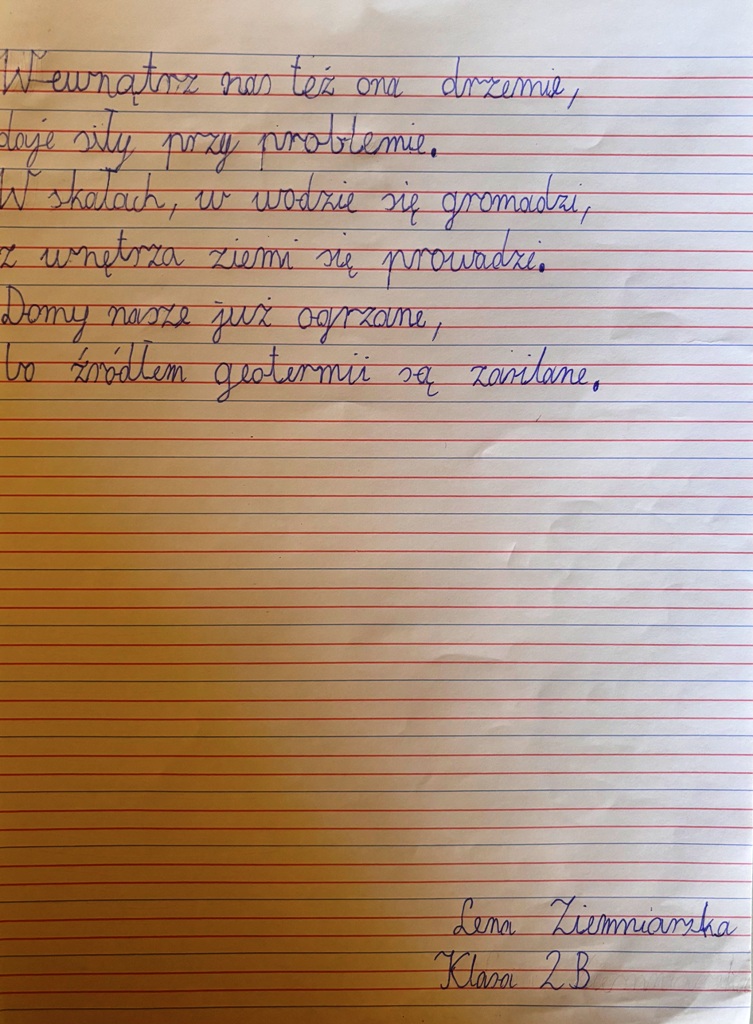 Wewnątrz nas też ona drzemie,
daje siły przy problemie.
W skałach, w wodzie się gromadzi,
z wnętrza ziemi się prowadzi.
Domy nasze już ogrzane,
bo źródłem geotermii są zasilane.
Lena Ziemniarska
Klasa 2B